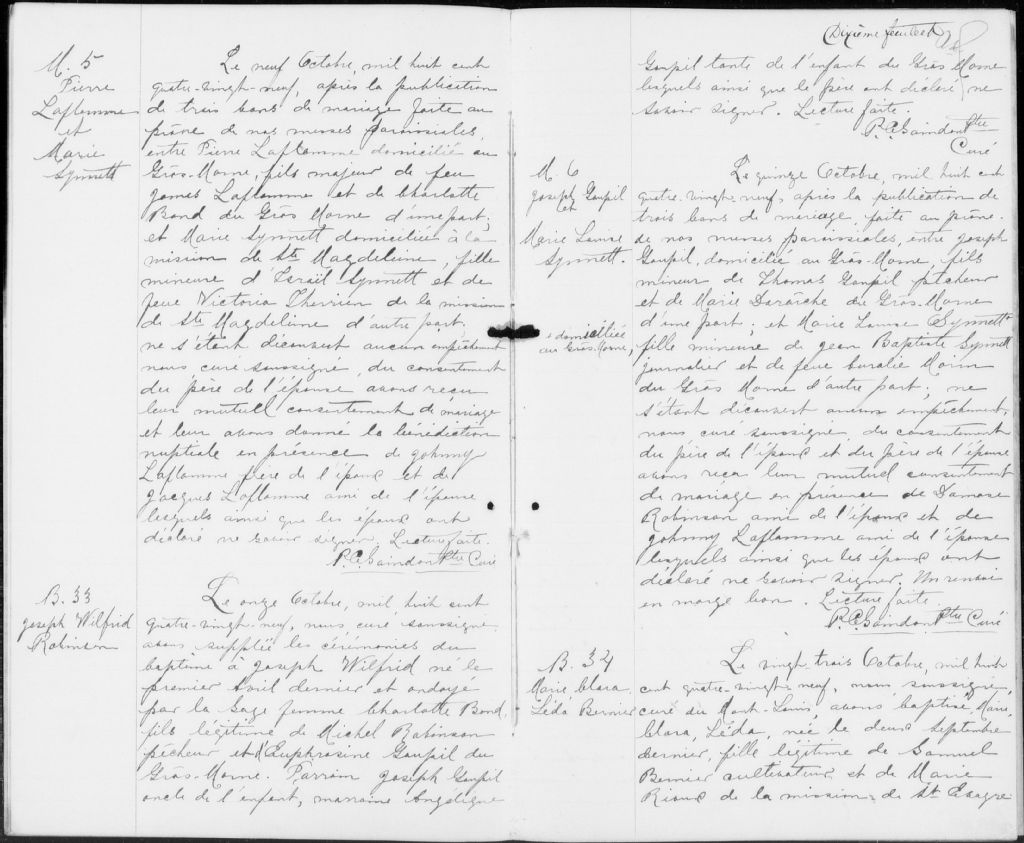 M. 5
Pierre
Laflamme
et
Marie
Synnett
Le neuf Octobre, mil huit cent
quatre-vingt-neuf, après la publication
de trois bans de mariage faite au
prône de nos messes paroissiales,
entre Pierre Laflamme domicilié au
Gros-Morne, fils majeur de feu
James Laflamme et de Charlotte
Bond du Gros Morne d'une part;
et Marie Synnett domiciliée à la
mission de Ste Magdeleine, fille
mineure d'Israël Synnett et de
feue Victoria Therrien de la mission
de Ste Magdeleine d'autre part,
ne s'étant découvert aucun empêchement
nous curé soussigné, du consentement
du père de l'épouse avons reçu
leur mutuel consentement de mariage
et leur avons donné la bénédiction
nuptiale en présence de Johnny
Laflamme frère de l'époux et de
Jacques Laflamme ami de l'épouse
lesquels ainsi que les époux ont
déclaré ne savoir signer. Lecture faite.
P.C. Saindon Ptre Curé
B. 33
Joseph Wilfrid
Robinson
Le onze Octobre, mil huit cent
quatre-vingt-neuf, nous curé soussigné
avons supplié les cérémonies du
baptême à Joseph Wilfrid né le
premier Avril dernier et ondoyé
par la sage femme Charlotte Bond,
fils légitime de Michel Robinson
pêcheur et d'Euphrosine Goupil du
Gros-Morne. Parrain Joseph Goupil
oncle de l'enfant, marraine Angélique
Dixième feuillet
Goupil tante de l'enfant du Gros Morne
lesquels ainsi que le père ont déclaré ne
savoir signer. Lecture faite.
P.C. Saindon Ptre
Curé
M. 6
Joseph Goupil
et
Marie Louise
Synnett.
Le quinze Octobre, mil huit cent
quatre-vingt-neuf, après la publication de
trois bans de mariage faite au prône
de nos messes paroissiales, entre Joseph
Goupil, domicilié au Gros-Morne, fils
mineur de Thomas Goupil pêcheur
et de Marie Deraiche du Gros-Morne
d'une part; et Marie Louise Synnett
domiciliée
au Gros-Morne,
fille mineure de Jean Baptiste Synnett
journalier et de feue Euralie Morin
du Gros Morne d'autre part; ne
s'étant découvert aucun empêchement,
nous curé soussigné, du consentement
du père de l'époux et du père de l'épouse
avons reçu leur mutuel consentement
de mariage en présence de Damase
Robinson ami de l'époux et de
Johnny Laflamme ami de l'épouse
lesquels ainsi que les époux ont
déclaré ne savoir signer. Un renvoi
en marge bon. Lecture faite
P.C. Saindon Ptre Curé
B. 34
Marie Clara
Léda Bernier
Le vingt trois Octobre, mil huit
cent quatre-vingt-neuf, nous soussigné,
curé du Mont-Louis, avons baptisé Marie,
Clara, Léda, née le deux Septembre
dernier, fille légitime de Samuel
Bernier cultivateur et de Marie
Rioux de la mission de St